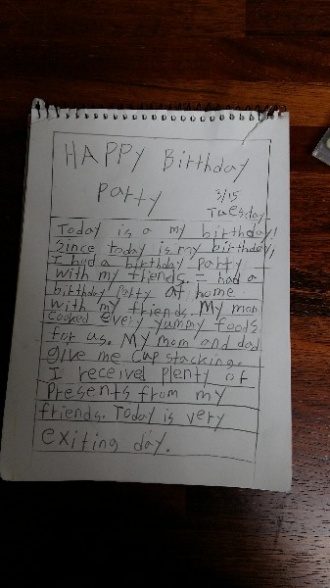 HAPPY Birthday
Party
3/15
Tuesday
Today is a my birthday!
Since today is my birthday,
I had a birthday party
with my friends. I had a
birthday party at home
with my friends. My mom
cooked every yummy foods
for us. My mom and dad
give me cup stacking.
I received plenty of
Presents from my
friends. Today is very
exiting day.